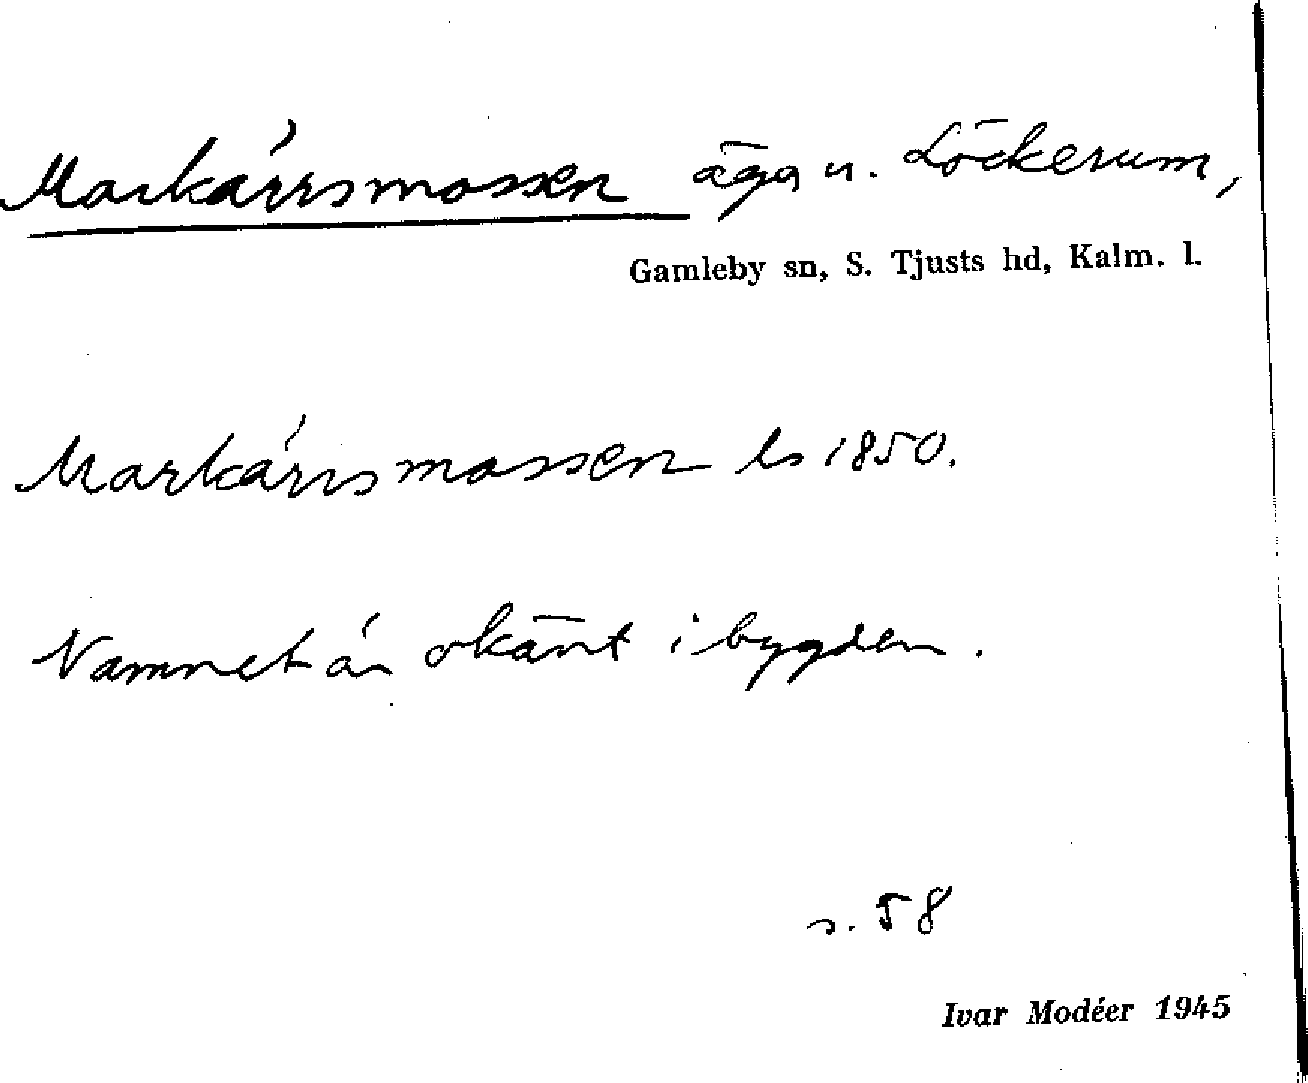 Markärrsmossen äga u. Löckerum,
Gamleby sn, S. Tjusts hd, Kalm. l.
Markärrsmossen ls 1850.
Namnet är okänt i bygden.
s. 58
Ivar Modéer 1945